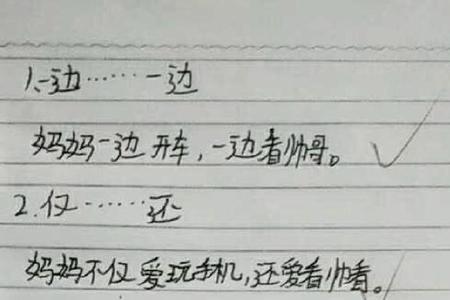 1、一边……一边
妈妈一边开车，一边看帅哥。
2.仅……还
妈妈不仅爱玩手机，还爱看帅看。